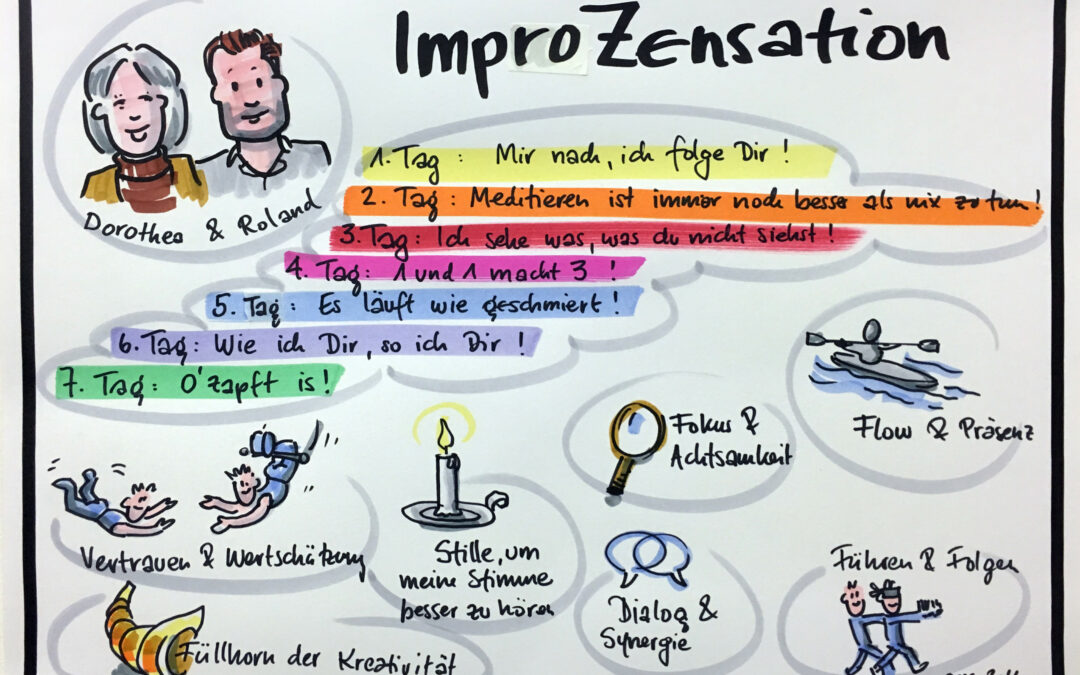 ImproZensation
Dorothea & Roland
1. Tag : Mir nach, ich folge Dir !
2. Tag : Meditieren ist immer noch besser als nix zu tun !
3. Tag : Ich sehe was, was du nicht siehst !
4. Tag : 1 und 1 macht 3 !
5. Tag : Es läuft wie geschmiert !
6. Tag : Wie ich Dir, so ich Dir !
7. Tag : O'zapft is !
Flow & Präsenz
Fokus &
Achtsamkeit
Vertrauen & Wertschätzung
Stille, um
meine Stimme
besser zu hören
Dialog &
Synergie
Führen & Folgen
Füllhorn der Kreativität